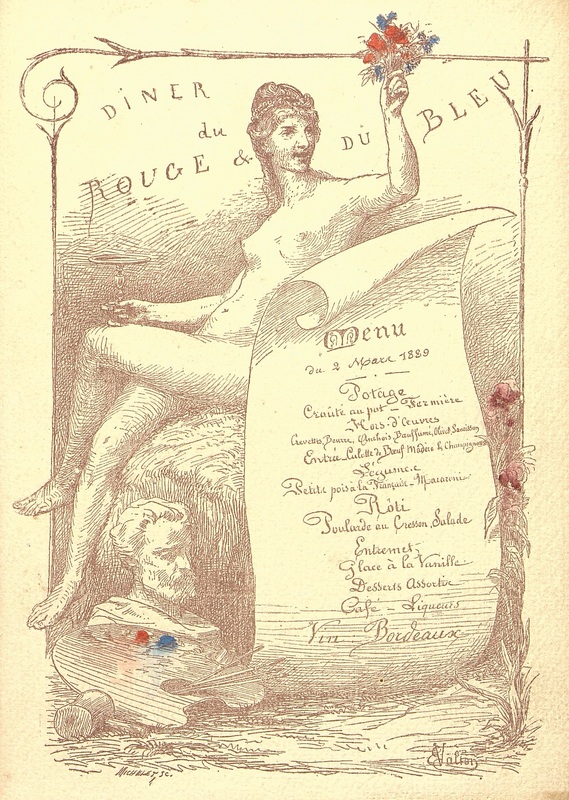 DINER
du
ROUGE & DU BLEU
Menu
du 2 Mars 1889
Potage
Croûte au pot - Fermière
Hors-d'œuvres
Crevettes, Beurre, Anchois, Bœuf fumé, Olives, Saucisson
Entrée Culotte de Bœuf Madère & Champignons
Légumes
Petits pois à la Française - Macaroni
Rôti
Poularde au Cresson, Salade
Entremets
Glace à la Vanille
Desserts Assortis
Café - Liqueurs
Vin : Bordeaux
MICHELET SC.
E Valton